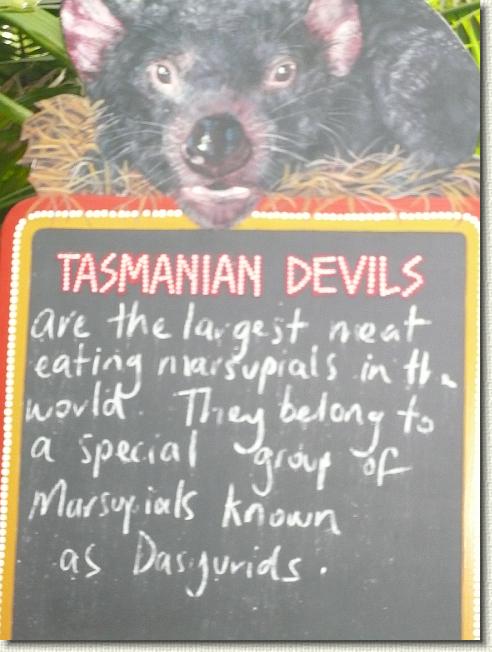 TASMANIAN DEVILS
are the largest meat
eating marsupials in the
world. They belong to
a special group of
Marsupials known
as Dasyurids.